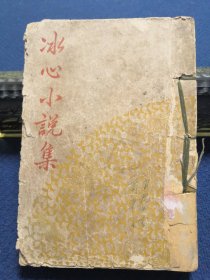 冰心小説集